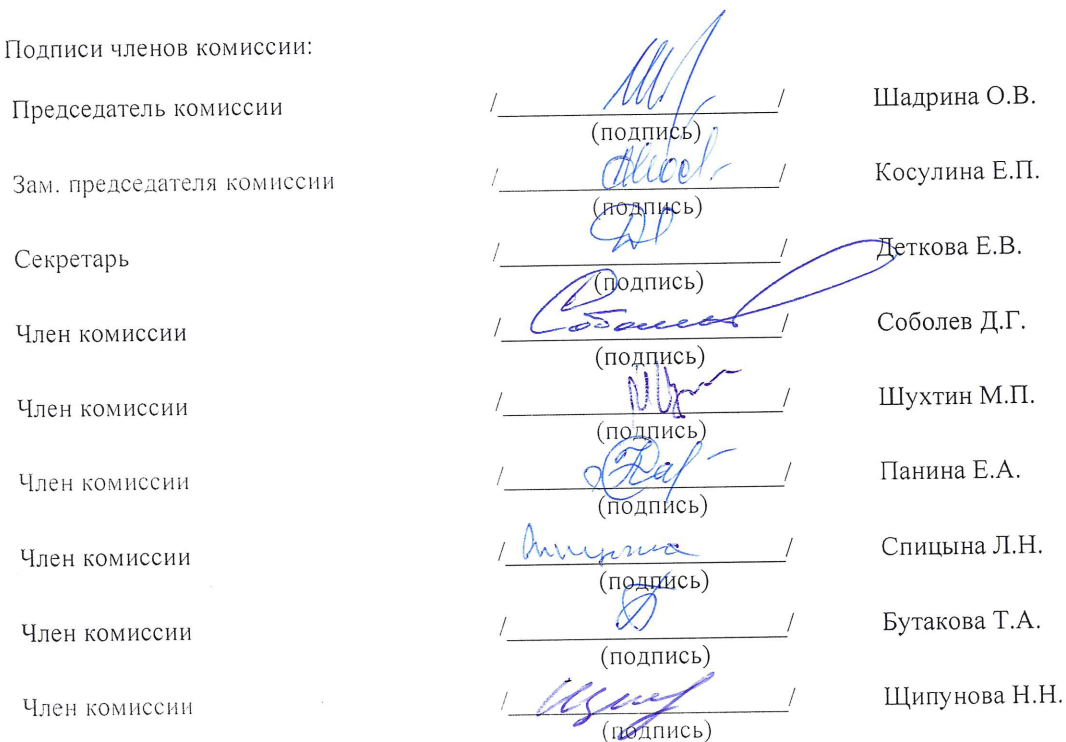 Подписи членов комиссии:
Председатель комиссии / / Шадрина О.В.
(подпись)
Зам. председателя комиссии / / Косулина Е.П.
(подпись)
Секретарь / / Деткова Е.В.
(подпись)
Член комиссии / / Соболев Д.Г.
(подпись)
Член комиссии / / Шухтин М.П.
(подпись)
Член комиссии / / Панина Е.А.
(подпись)
Член комиссии / / Спицына Л.Н.
(подпись)
Член комиссии / / Бутакова Т.А.
(подпись)
Член комиссии / / Щипунова Н.Н.
(подпись)